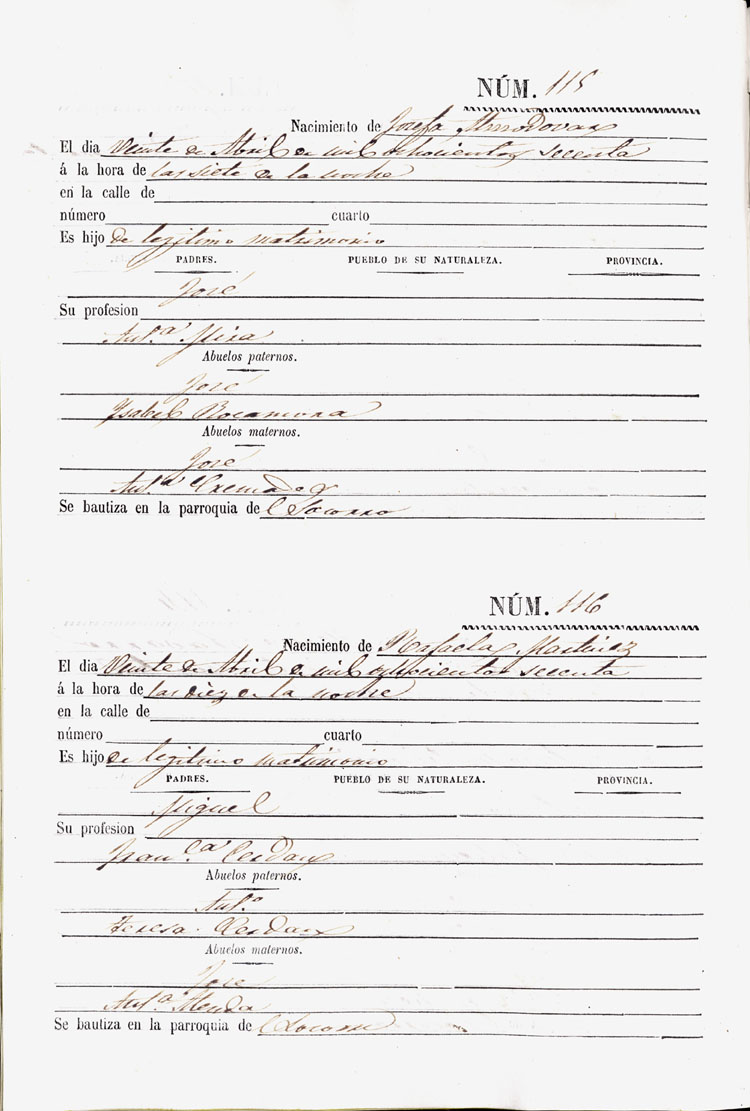 NÚM. 115
Nacimiento de Josefa Almodovar
El dia Veinte de Abril de mil ochocientos secenta
á la hora de las siete de la noche
en la calle de
número cuarto
Es hijo de legitimo matrimonio
PADRES. PUEBLO DE SU NATURALEZA. PROVINCIA.
José
Su profesion
Ant.ª Mira
Abuelos paternos.
José
Ysabel Rocamora
Abuelos maternos.
José
Ant.ª Cremades
Se bautiza en la parroquia de l Socorro
NÚM. 116
Nacimiento de Rafaela Martinez
El dia Veinte de Abril de mil ochocientos secenta
á la hora de las diez de la noche
en la calle de
número cuarto
Es hijo de legitimo matrimonio
PADRES. PUEBLO DE SU NATURALEZA. PROVINCIA.
Miguel
Su profesion
Fran.ca Cerdan
Abuelos paternos.
Ant.º
Teresa Cerdan
Abuelos maternos.
José
Ant.ª
Se bautiza en la parroquia de l Socorro